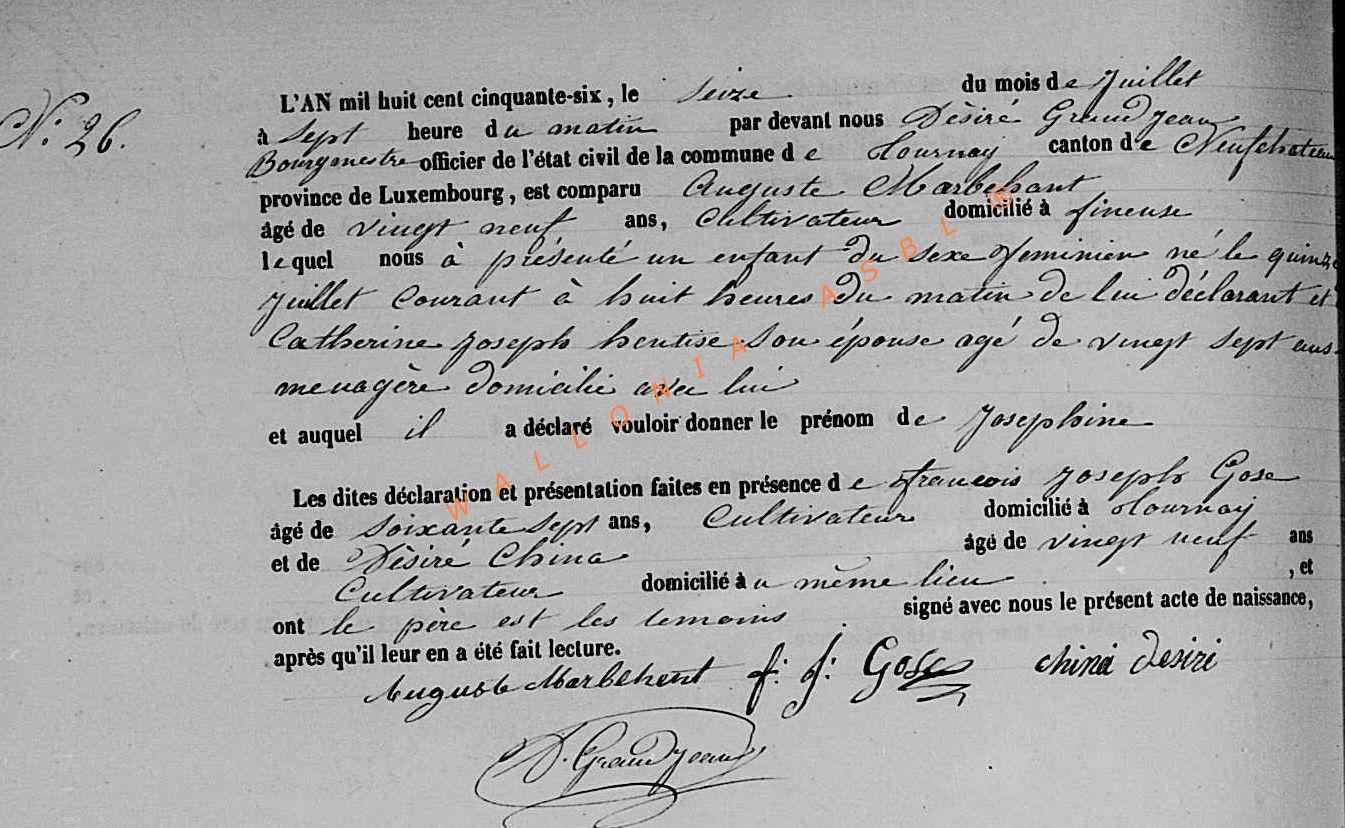 N: 26.
L'AN mil huit cent cinquante-six, le seize du mois de juillet
à sept heure du matin par devant nous Dèsiré Grandjean
Bourgmestre officier de l'état civil de la commune de Tournay canton de Neufchateau
province de Luxembourg, est comparu Auguste Marbehant
âgé de vingt neuf ans, Cultivateur domicilié à fineuse
lequel nous à présenté un enfant du sexe feminien né le quinze
juillet Courant à huit heures du matin de lui déclarant et
Catherine joseph hentise son épouse agé de vingt sept ans
menagère domicilié avec lui
et auquel il a déclaré vouloir donner le prénom de Josephine
Les dites déclaration et présentation faites en présence de francois joseph Gose
âgé de soixante sept ans, Cultivateur domicilié à Tournay
et de Dèsiré China âgé de vingt neuf ans
Cultivateur domicilié au même lieu , et
ont le père est les temoins signé avec nous le présent acte de naissance,
après qu'il leur en a été fait lecture.
Auguste Marbehent f: j: Gose china desiri
D. Grandjean
WALLONIA ASBL ®